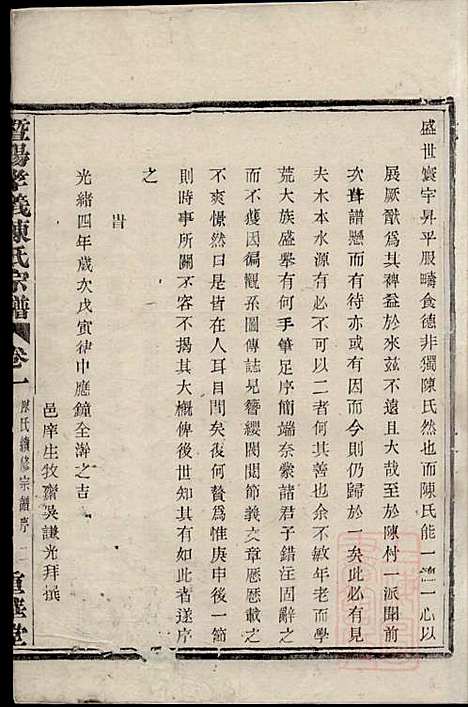 盛世寰宇昇平服疇食德非獨陳氏然也而陳氏能一體一心以
展厥猷為其裨益於來茲不遠且大哉至於陳村一派聞前
次聱譜懸而有待亦或有因而今則仍歸於一矣此必有見
夫木本水源有必不可以二者何其善也余不敏年老而學
荒大族盛舉有何手筆足序簡端奈蒙諸君子錯注固辭之
而不獲因徧觀系圖傳誌見簪纓閥閱節義文章歷歷載之
不爽憬然曰是皆在人耳目間矣復何贅爲惟庚申後一節
則時事所關不容不揭其大概俾後世知其有如此者遂序
之
旹
光緒四年歲次戊寅律中應鐘全澣之吉
邑庠生牧齋吳謙光拜撰
暨陽孝義陳氏宗譜 卷一 陳氏續修宗譜序 二 重華堂